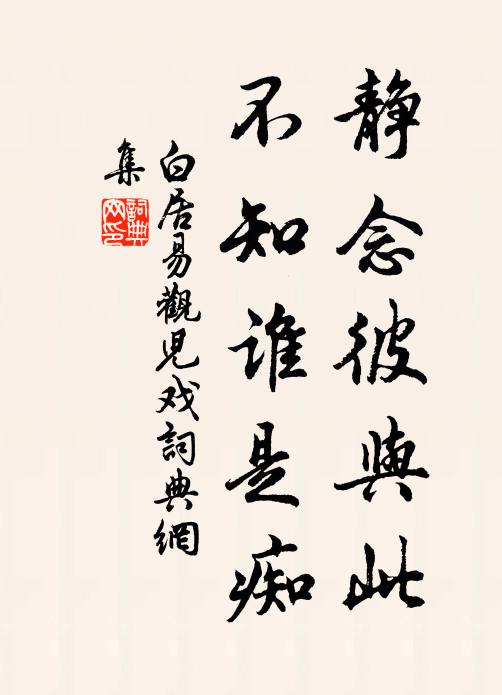 静念彼與此
不知谁是痴
白居易觀児戏詞典網
集
詞典
网印